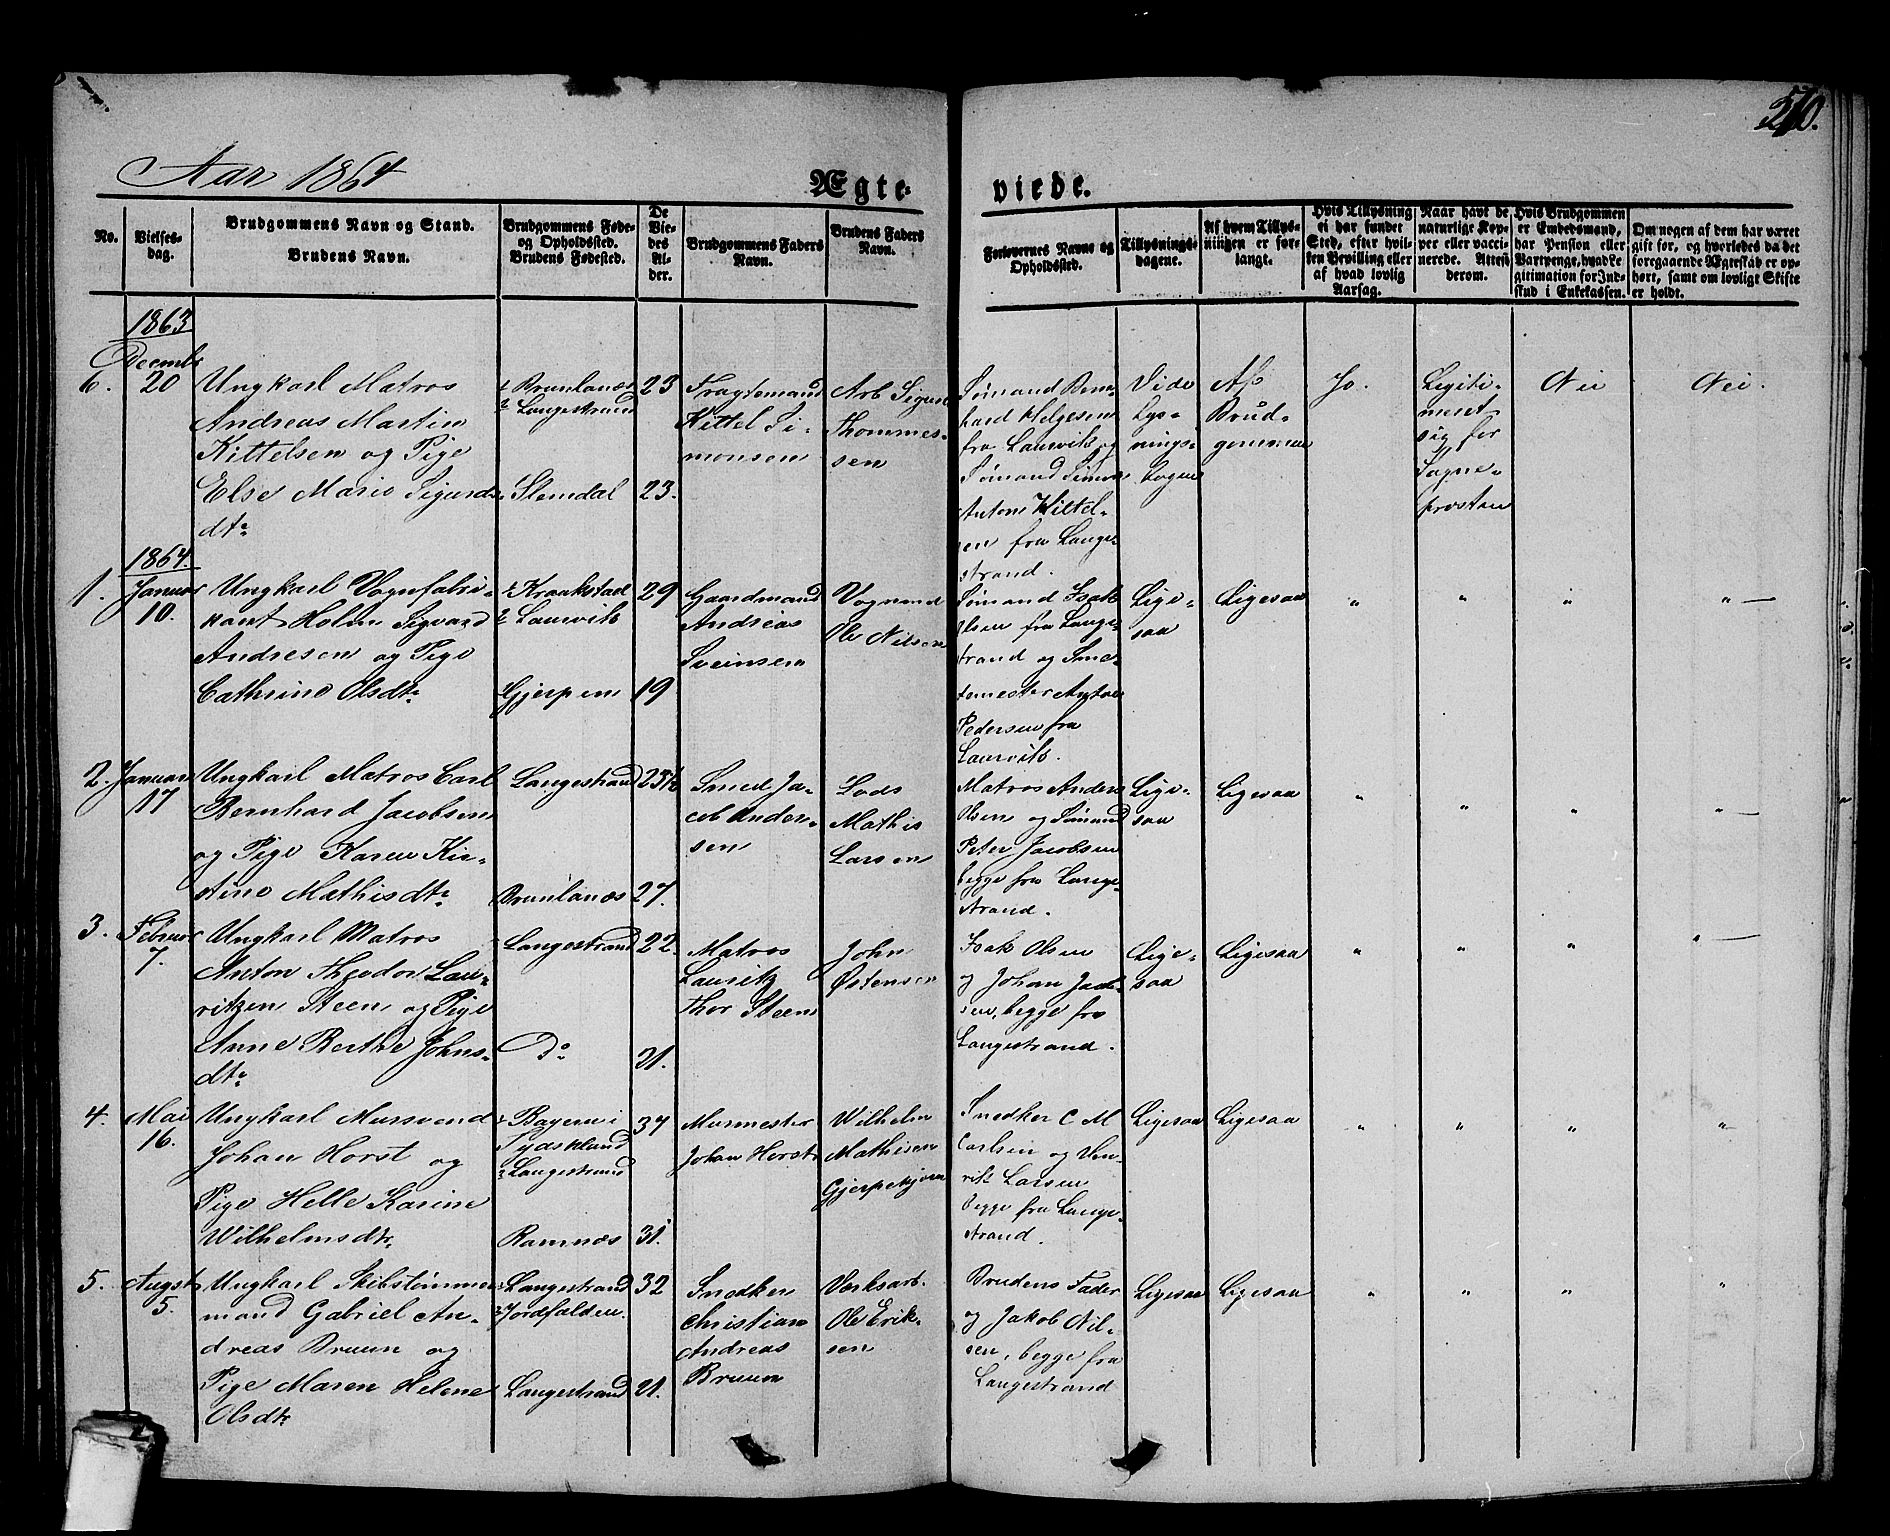 510.
Aar 1864
Ægte-
viede.
No.
Vielses-
dag.
Brudgommens Navn og Stand.
Brudens Navn.
Brudgommens Føde-
og Opholdssted.
Brudens Fødested.
De
Vie-
des
Al-
der.
Brudgommens Faders
Navn.
Brudens Faders
Navn.
Forlovernes Navne og
Opholdssted.
Tillysnings-
dagene.
Af hvem Tillys-
ningen er for-
langt.
Hvis Tillysning
ei har fundet
Sted, efter hvil-
ken Bevilling eller
af hvad lovlig
Aarsag.
Naar havt de
naturlige Kop-
per eller vacci-
nerede. Attest
derom.
Hvis Brudgommen
er Embedsmand,
har Pension eller
Vartpenge, hvad Le-
gitimation for Ind-
skud i Enkekassen.
Om nogen af dem har været
gift før, og hvorledes da det
foregaaende Ægteskab er op-
hørt, samt om lovligt Skifte
er holdt.
1863
Decembr
6.
20
Ungkarl Matros
Andreas Martin
Kittelsen og Pige
Else Marie Sigurds-
dtr
1 Brunlanæs
2 Langestrand
Slemdal
23
23.
Fragtemand
Kittel Si-
monsen
Arb Sigurd
Thommes-
sen
Sømand Bern-
hard Helgesen
fra Laurvik og
Sømand Simon
Anton Kittel-
sen fra Lange-
strand.
Vide
Lys-
nings-
bogen
Af
Brud-
gommen
Jo.
Legiti-
meret
sig for
Sogne-
presten
Nei
Nei.
1864.
1.
Januar
10.
Ungkarl Vognfabri-
kant Holm Sigvard
Andresen og Pige
Cathrine Olsdtr
1 Kraakstad
2 Laurvik
Gjerpen
29
19
Gaardmand
Andreas
Sveinsen
Vognmd
Ole Nilsen
Sømand Isak
Olsen fra Lange-
strand og
Pedersen fra
Laurvik.
Lige-
saa
Ligesaa
"
"
"
" —
2.
Januar
17
Ungkarl Matros Carl
Bernhard Jacobsen
og Pige Karen Kir-
stine Mathisdtr
Langestrand
Brunlanæs
25½
27.
Smed Ja-
cob Ander-
sen
Lods
Mathis
Larsen
Matros Anders
Olsen og Sømand
Peter Jacobsen
begge fra Lange-
strand.
Lige-
saa
Ligesaa
"
"
"
" —
3.
Februar
7.
Ungkarl Matros
Anton Theodor Lau-
ritzen Steen og Pige
Anne Berthe Johns-
dtr
Langestrand
Do
22.
21.
Matros
Lauritz
Thor Steen
John
Østensen
Isak Olsen
og Johan
sen, begge fra
Langestrand.
Lige-
saa
Ligesaa
"
"
"
" —
4.
Mai
16.
Ungkarl Mursvend
Johan Horst og
Pige Helle Karine
Wilhelmsdtr
1 Bayern i
Tydskland
2 Langestrand
Ramnæs
37
31.
Murmester
Johan Horst
Wilhelm
Mathisen
Snedker C M
Carlsen og Hen-
rik Larsen
begge fra Lange-
strand.
Ligesaa
Ligesaa
"
"
"
"
5.
Augst
5.
Ungkarl Skibstømmer-
mand Gabriel An-
dreas Bruun og
Pige Maren Helene
Olsdtr
1 Langestrand
2 Jordfalden.
Langestrand
32
21.
Snedker
Christian
Andreas
Bruun
Værksarb.
Ole Erik-
sen
Brudens Fader
og Jakob Nil-
sen, begge fra
Langestrand
Ligesaa
Ligesaa
"
"
"
"